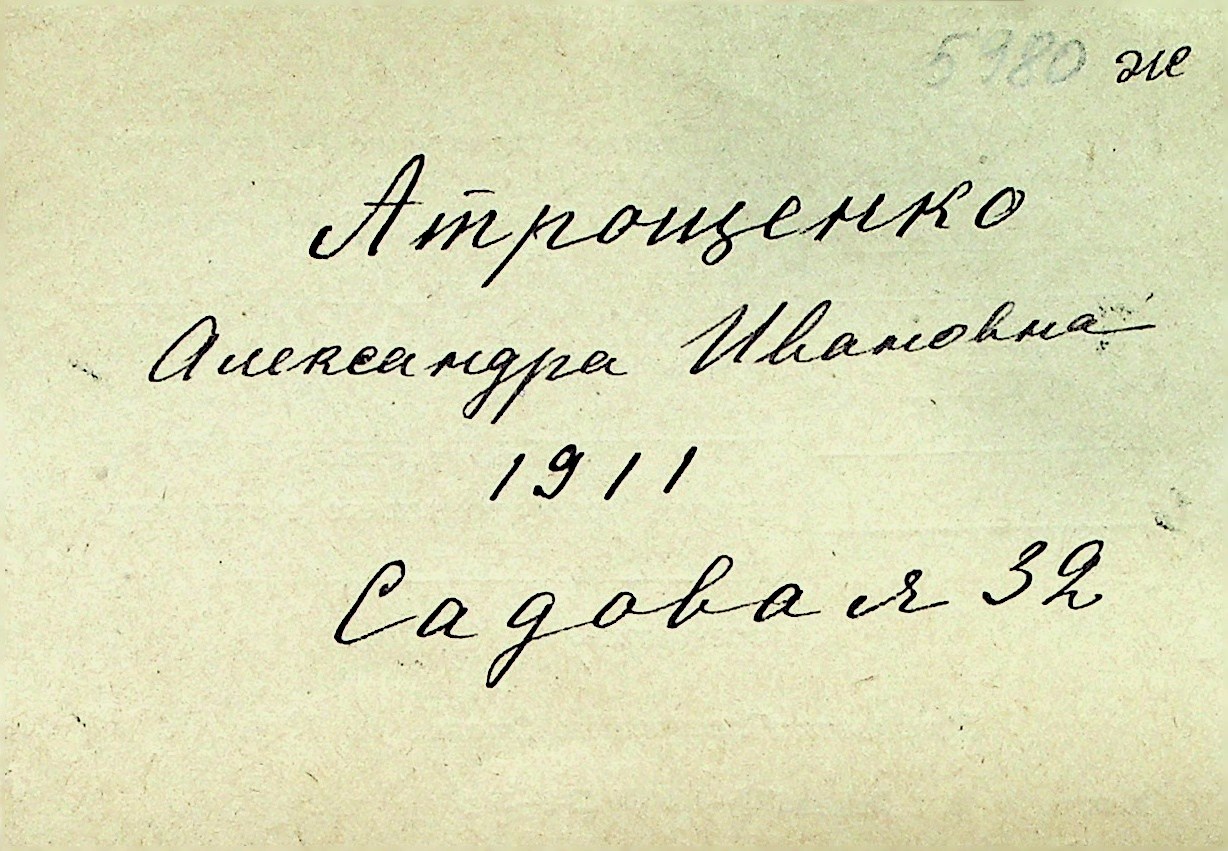 5980 ж
Атрощенко
Александра Ивановна
1911
Садовая 32